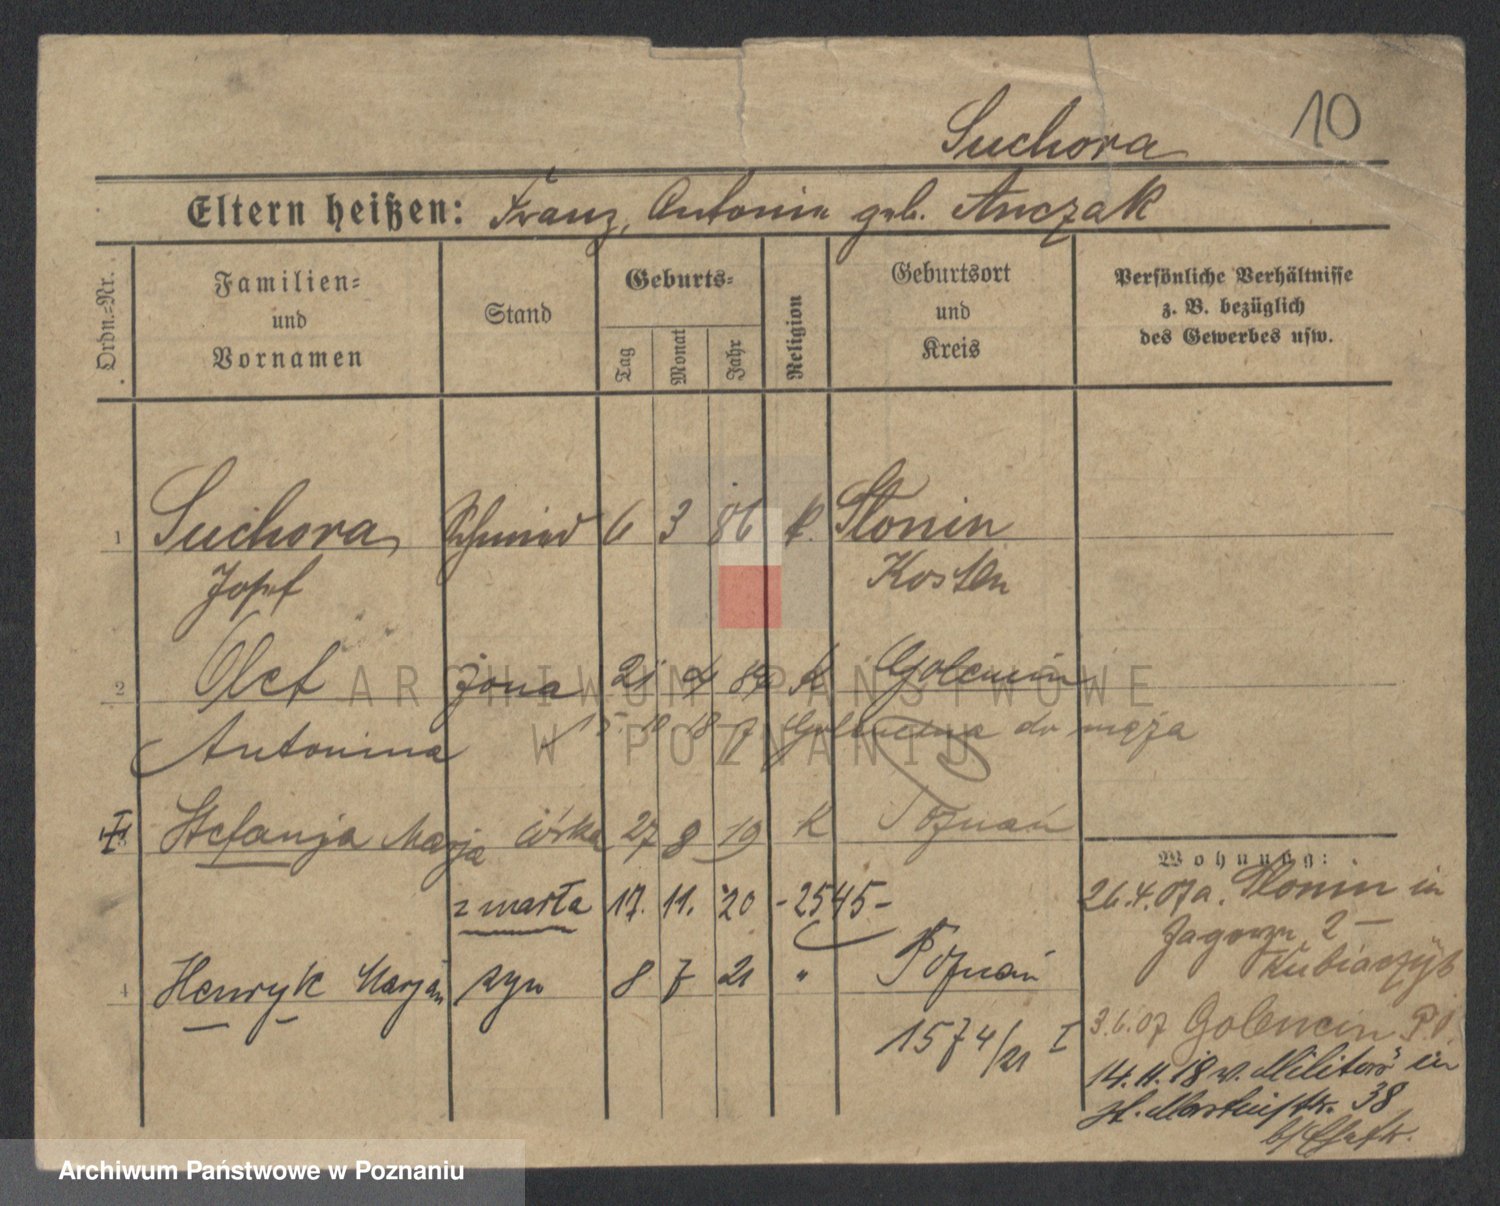 10
Suchora
Eltern heißen: Franz, Antonin geb. Anczak
Ordn.=Nr.
Familien=
und
Vornamen
Stand
Geburts=
Tag
Monat
Jahr
Religion
Geburtsort
und
Kreis
Persönliche Verhältnisse
z. B. bezüglich
des Gewerbes usw.
1 Suchora, Schmied 6 3 86 k. Slonin
Josef Kosten
2 Olet żona 21 4 87 K Golencin
Antonina 5. 10 18 z Golencina do męża
Poznań
3 Stefanja Marja córka 27 8 19 K Poznań
zmarła 17. 11. 20 - 2545 -
4 Henryk Marjan syn 8 7 21 " Poznań
1574/21 I
Wohnung:
26.4.07 a. Slonin in
2 -
Kubiaczyk
3.6.07 Golencin P.O.
14.11.18 v. Militär in
St. Martinstr. 38
b/
ARCHIWUM PAŃSTWOWE
W POZNANIU
Archiwum Państwowe w Poznaniu